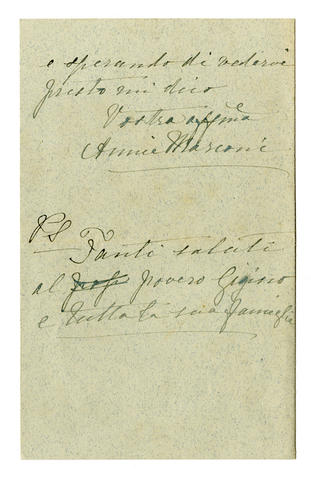 e sperando di vedervi
presto mi dico
Vostra affma
Annie Marconi
PS
Tanti saluti
al povero Gigino
e tutta la sua famiglia